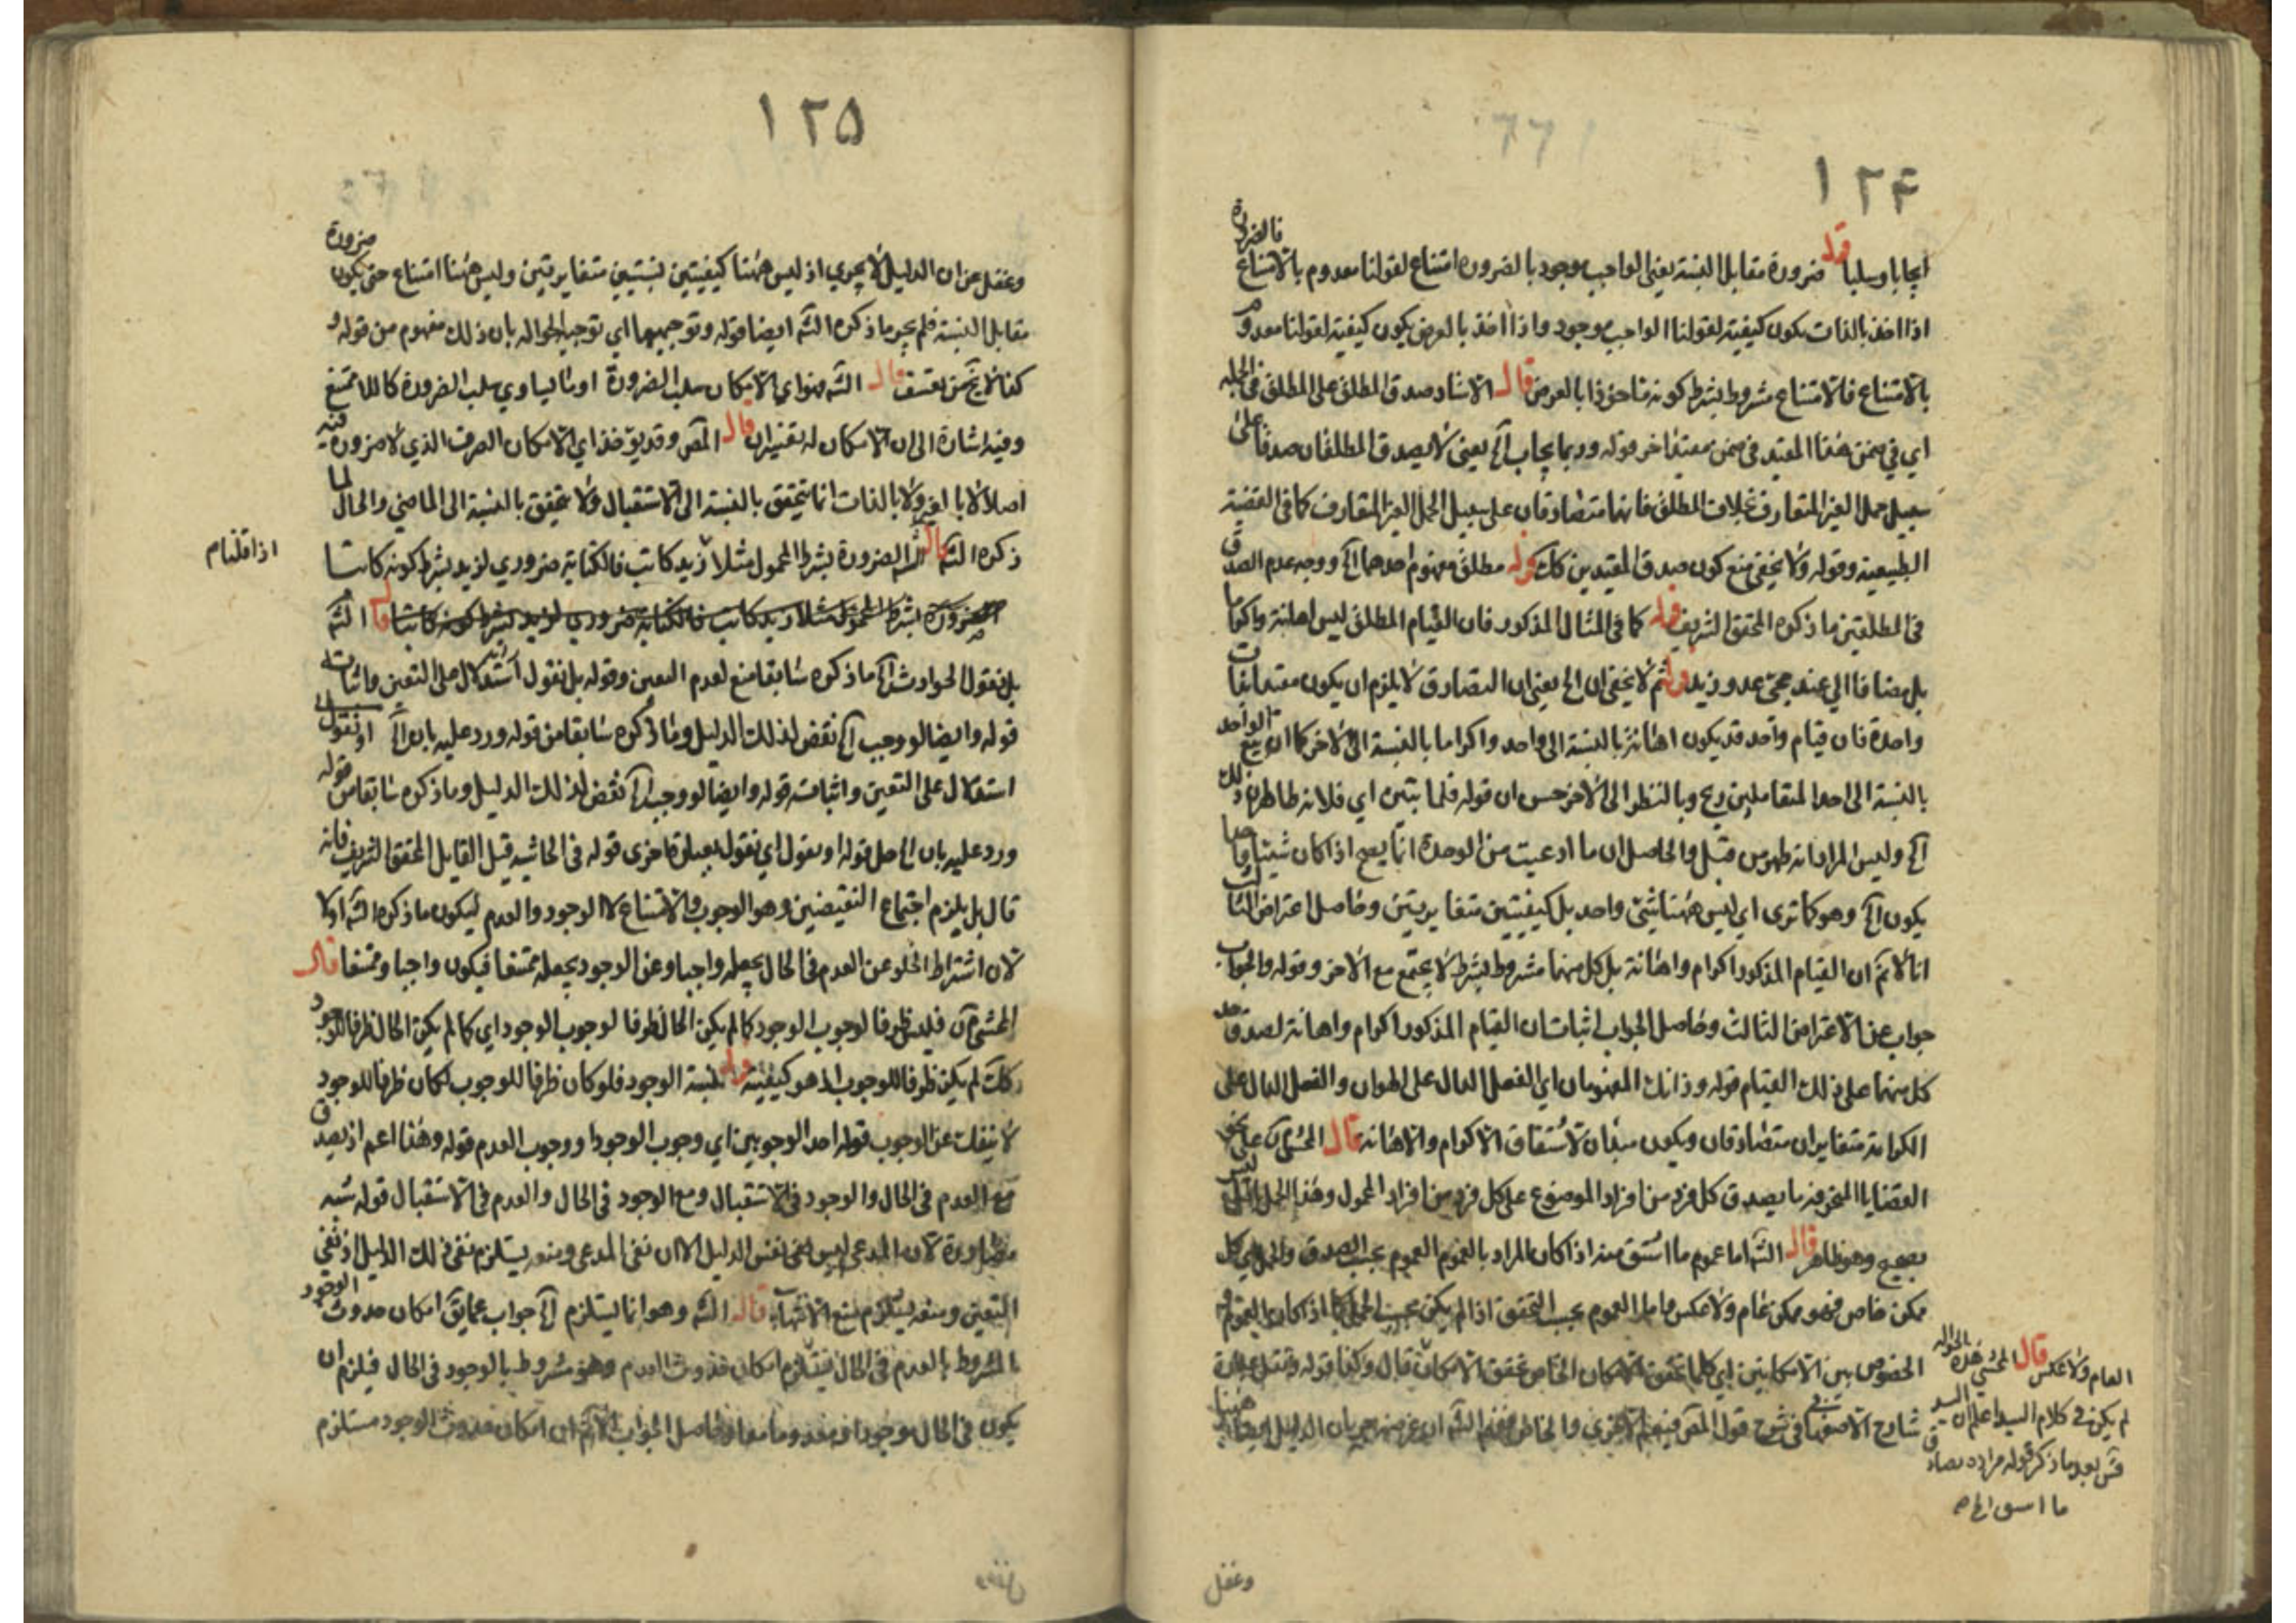 ١٢۴
ايجابا وسلبا قوله ضرورة مقابل النسبة يعني الواجب موجود بالضرورة امتناع لقولنا معدوم بالامتناع فالضرورة
اذا اخذ بالذات يكون كيفية لقولنا الواجب موجود واذا اخذ بالعرض يكون كيفية لقولنا معدوم
بالامتناع فالامتناع مشروط بشرط كونه ماخوذا بالعرض قال الاستاد صدق المطلق على المطلق في الجملة
اي في ضمن هذا المقيد في ضمن مقيد اخر قوله وربما يجاب آه يعني لا يصدق المطلقان صدقا على
سبيل حمل الغير المتعارف بخلاف المطلق فانهما متصادقان على سبيل الحمل الغير المتعارف كما في القضية
الطبيعية وقوله ولا يخفى منع كون صدق المقيدين كك قوله مطلق مفهوم احدهما آه ووجه عدم الصدق
في المطلقين ما ذكره المحقق الشريف قوله كما في المثال المذكور فان القيام المطلق ليس اهانة واكراما
بل مضافا الى عند مجئ عدو وزيد قوله ثم لا يخفى ان الخ يعني ان التصادق لا يلزم ان يكون مقيدا بذات
واحدة فان قيام واحد قد يكون اهانة بالنسبة الى واحد واكراما بالنسبة الى الاخر كما ان بيع الواحد
بالنسبة الى احد المتقاملين ربح وبالنظر الى الاخر خس ان قوله فلما بتين اي فلانه ظاهر ذلك
آه وليس المراد انه ظهر من قبل والحاصل ان ما ادعيت من الوحدة انما يصح اذا كان شيئا واحدا
يكون آه وهو كما ترى اي ليس ههنا شئ واحد بل كيفيتين متغايرتين وحاصل اعتراض الثالث
انا لا نم ان القيام المذكور اكرام واهانة بل كل منهما مشروط بشرط لا يجتمع مع الاخر وقوله والجواب
جواب عن الاعتراض الثالث وحاصل الجواب اثبات ان القيام المذكور اكرام واهانة لصدق حد
كل منهما على ذلك القيام قوله وذانك المفهومان اي الفعل الدال على الهوان والفعل الدال على
الكرامة متغايران متصادقان ويكون مبدأن لاشتقاق الاكرام والاهانة قال المحشي آه على نحو
القضايا المنحرفة ما يصدق كل فرد من افراد الموضوع على كل فرد من افراد المحمول وهذا الحمل ليس
بصحيح وهو ظاهر قال الشه اما عموم ما اشتق منه اذا كان المراد بالعموم العموم بحسب الصدق والحمل اي كل
ممكن خاص فهو ممكن عام ولا عكس واما العموم بحسب التحقق اذا لم يكن بحسب الحمل كما اذا كان العموم و
الخصوص بين الامكانين اي كلما تحقق الامكان الخاص تحقق الامكان قال وكذا قوله ونقل عبارة
شارح الاصفهاني في شرح قول المص
العام ولا عكس قال المحشي هذه الحوالة
لم يكن في كلام السيد اعلم ان السيد
قس بعد ما ذكر قوله مراده تصادق
ما اسق الخ
وغفل
١٢۵
وغفل عن ان الدليل لا يجري اذ ليس ههنا كيفيتين نسبتين متغايرتين وليس ههنا امتناع حتى يكون ضرورة
مقابل النسبة فلم يجر ما ذكره الشه ايضا قوله وتوجيهها اي توجيه الحوالة بان ذلك مفهوم من قوله و
كذا لا يخ عن تعسف قال الشه هو اي الامكان سلب الضرورة او ما يساوي سلب الضرورة كاللاممتنع
وفيه اشارة الى ان الامكان له تفسيران قال المص وقد يؤخذ اي الامكان الصرف الذي لا ضرورة فيه
اصلا لا بالغير ولا بالذات انما يتحقق بالنسبة الى الاستقبال ولا يتحقق بالنسبة الى الماضي والحال لما
ذكره الشه قال الشه الضرورة بشرط المحمول مثلا زيد كاتب فالكتابة ضروري لزيد بشرط كونه كاتبا
ضرورة بشرط المحمول مثلا زيد كاتب فالكتابة ضروري لزيد بشرط كونه كاتبا قال الشه
بل نقول الحوادث آه ما ذكره سابقا منع لعدم التعين وقوله بل نقول استدلال على التعين واثبات
قوله وايضا لو وجب آه نقض لذلك الدليل وما ذكره سابقا من قوله ورد عليه بان آه او نقول
استدلال على التعين واثباته قوله وايضا لو وجب آه نقض لذلك الدليل وما ذكره سابقا من قوله
ورد عليه بان الحاصل قوله او نقول اي نقول بعبارة اخرى قوله في الحاشية قيل القايل المحقق الشريف فانه
قال بل يلزم اجتماع النقيضين وهو الوجوب والامتناع لا الوجود والعدم ليكون ما ذكره الشه اولا
لان اشتراط الخلو عن العدم في الحال يجعله واجبا وعن الوجود يجعله ممتنعا فيكون واجبا وممتنعا قال
المحشي آه فليس ظرفا لوجوب الوجود كما لم يكن الحال ظرفا لوجوب الوجود اي كما لم يكن الحال ظرفا للوجود
كك لم يكن ظرفا للوجوب الذي هو كيفية قوله لنسبة الوجود فلو كان ظرفا للوجوب لكان ظرفا للوجود
لا ينفك عن الوجوب قوله احد الوجوبين اي وجوب الوجود او وجوب العدم قوله وهذا اعم اذ يصدق
مع العدم في الحال والوجود في الاستقبال ومع الوجود في الحال والعدم في الاستقبال قوله شبه
مصادرة لان المدعى ليس نفس الدليل الا ان نفي المدعى ومنعه يستلزم نفي ذلك الدليل اذ نفي
التعين ومنعه يستلزم منع الانتهاء قال الشه وهو انما يستلزم آه جواب عما يق امكان حدوث الوجود
المشروط بالعدم في الحال يستلزم امكان حدوث العدم وهو مشروط بالوجود في الحال فيلزم ان
يكون في الحال موجودا او معدوما معا وحاصل الجواب لا نم ان امكان حدوث الوجود مستلزم